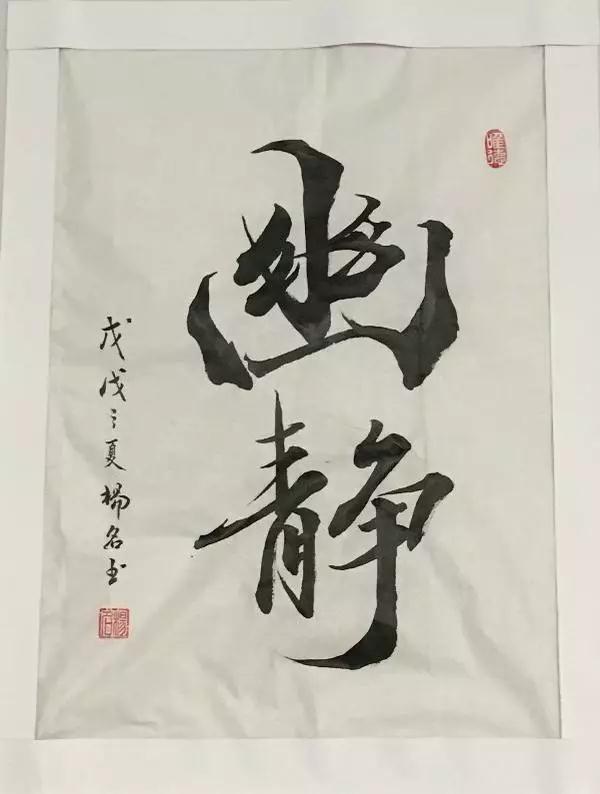 幽静
戊戌之夏杨名书